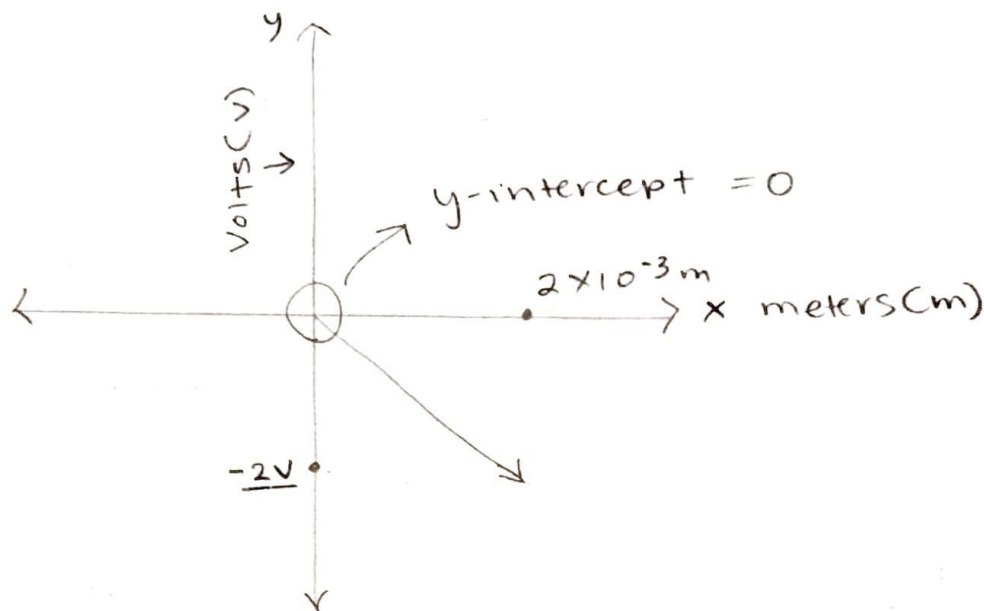 y
Volts(V)
y-intercept = 0
2×10⁻³m
x meters(m)
-2V